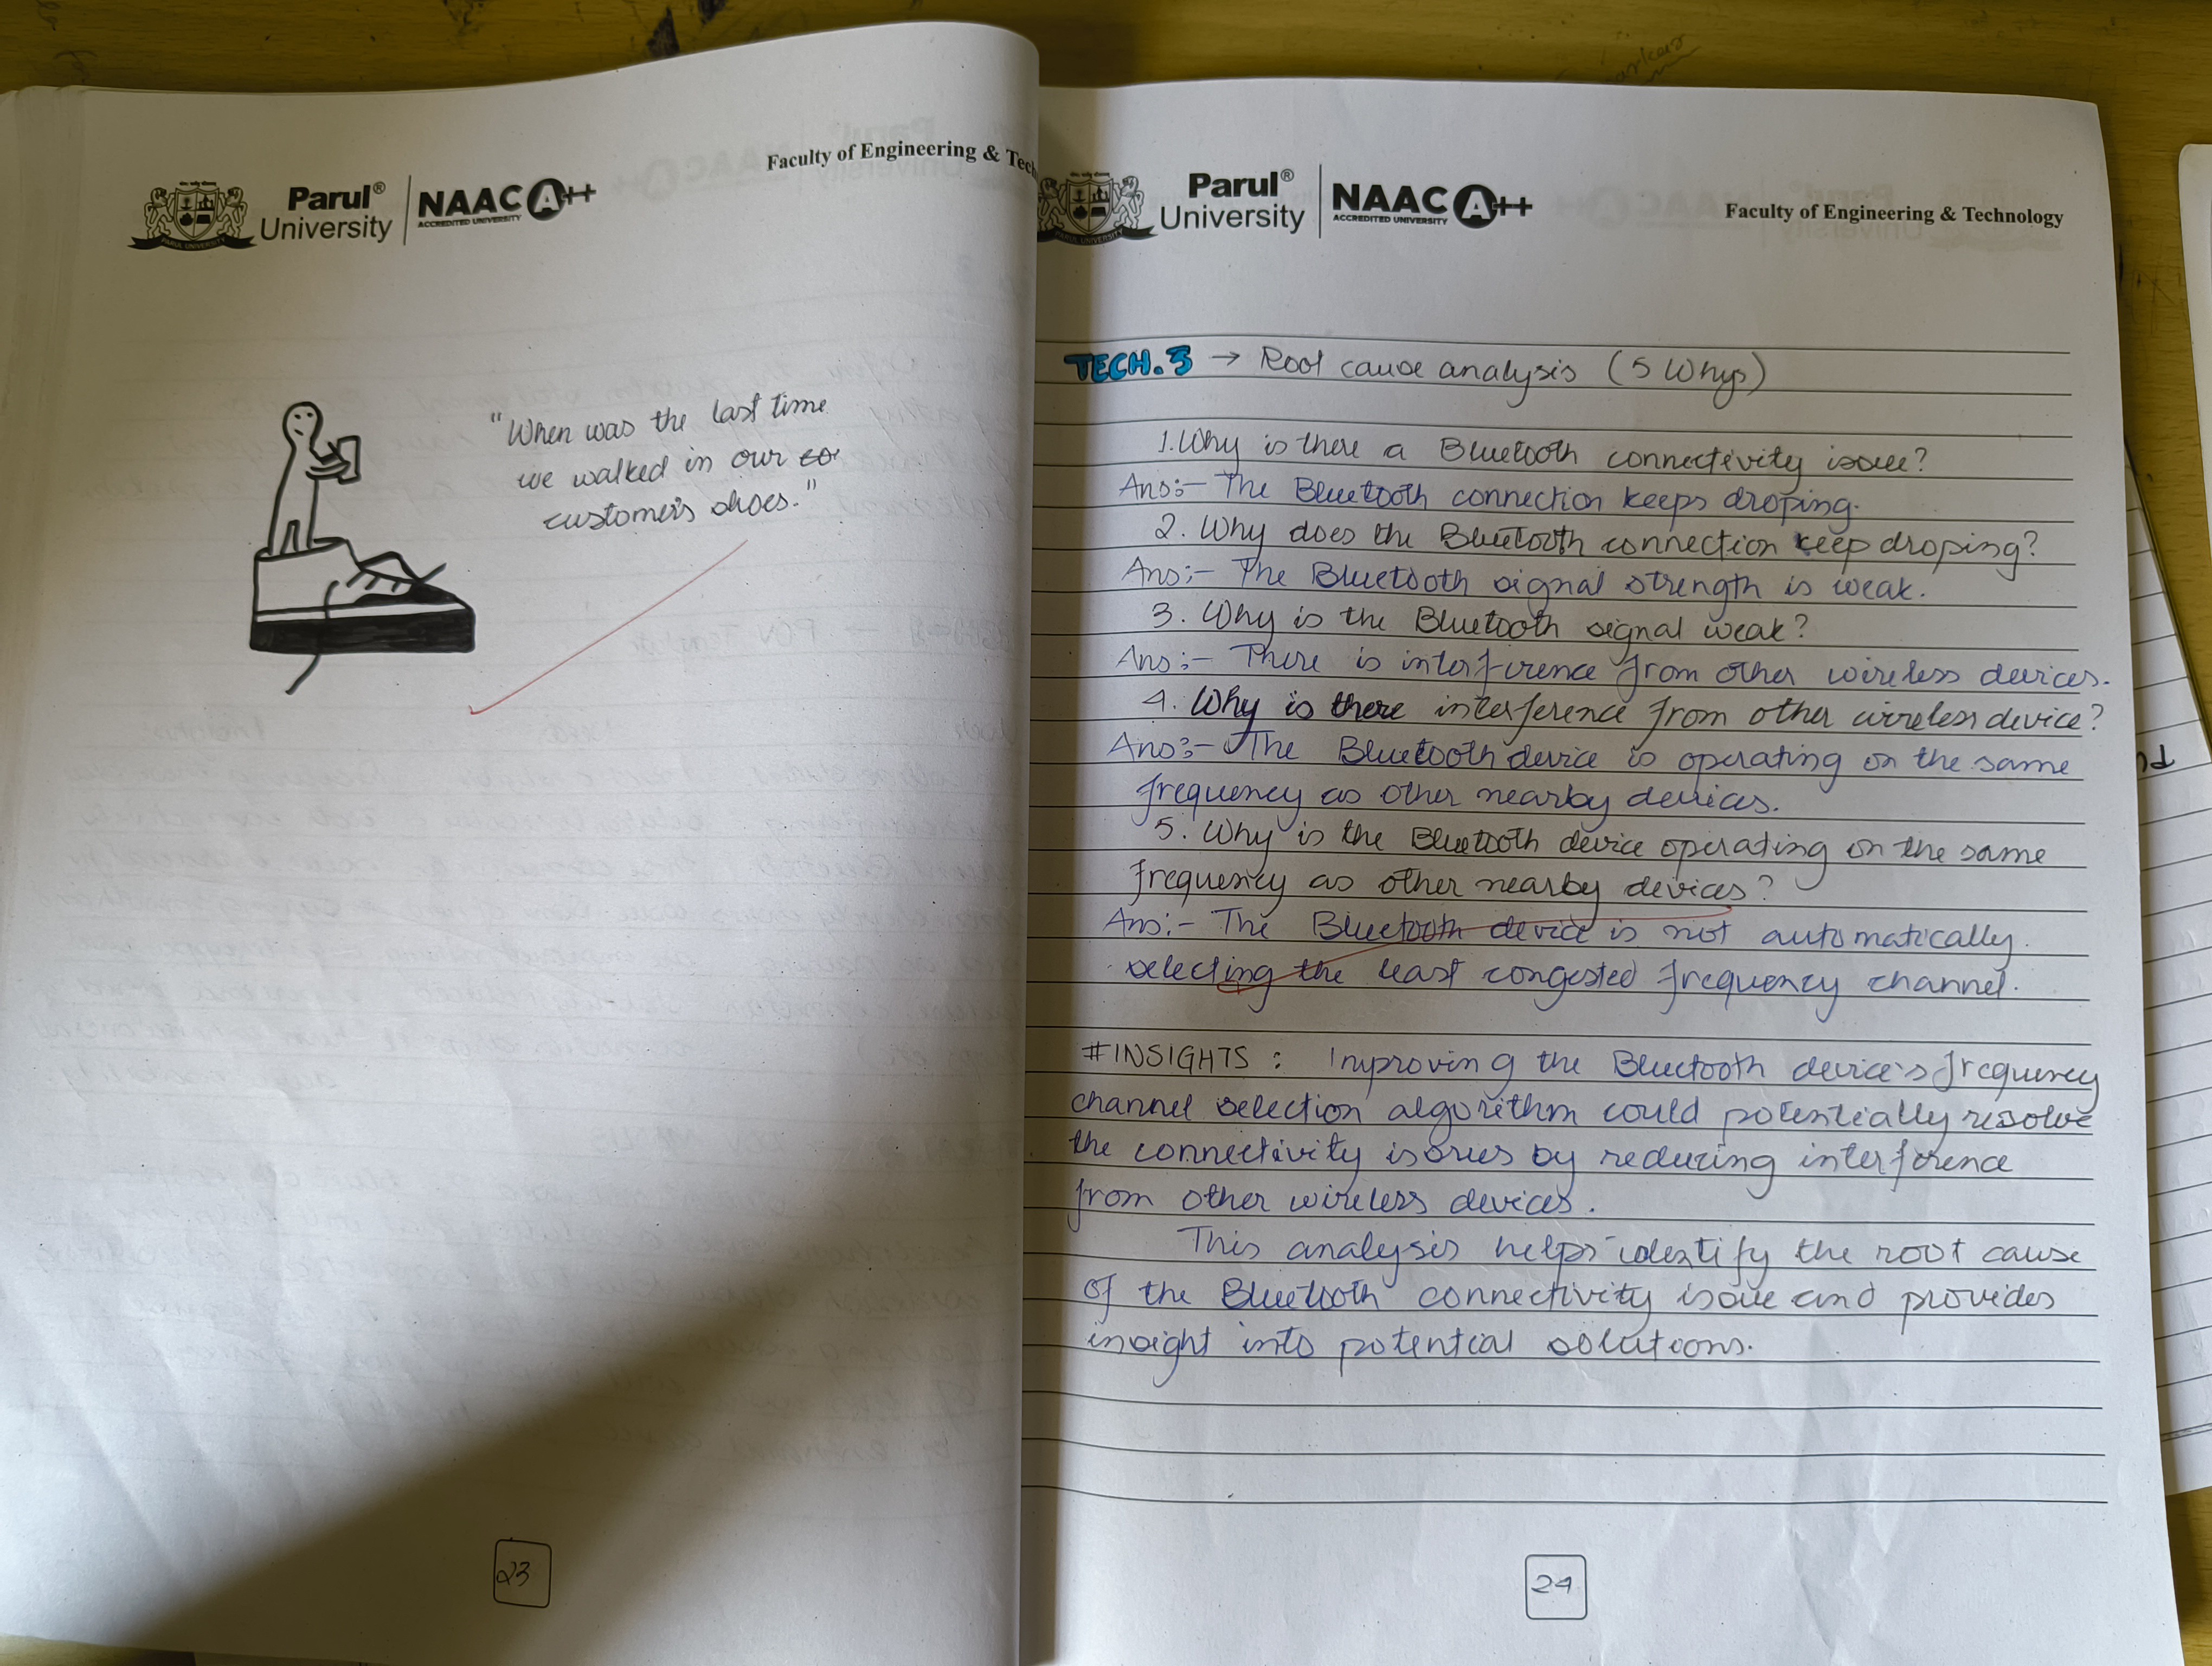 Faculty of Engineering & Tech
Parul®
University
NAAC A++
ACCREDITED UNIVERSITY
PARUL UNIVERSITY
"When was the last time
we walked in our co
customer's shoes."
23
Parul®
University
NAAC A++
ACCREDITED UNIVERSITY
PARUL UNIVERSITY
Faculty of Engineering & Technology
TECH.3 → Root cause analysis (5 Whys)
1. Why is there a Bluetooth connectivity issue?
Ans:- The Bluetooth connection keeps droping.
2. Why does the Bluetooth connection keep droping?
Ans:- The Bluetooth signal strength is weak.
3. Why is the Bluetooth signal weak?
Ans:- There is interference from other wireless devices.
4. Why is there interference from other wireless device?
Ans:- The Bluetooth device is operating on the same
frequency as other nearby devices.
5. Why is the Bluetooth device operating on the same
frequency as other nearby devices?
Ans:- The Bluetooth device is not automatically
selecting the least congested frequency channel.
#INSIGHTS: Improving the Bluetooth device's frequency
channel selection algorithm could potentially resolve
the connectivity issues by reducing interference
from other wireless devices.
This analysis helps identify the root cause
of the Bluetooth connectivity issue and provides
insight into potential solutions.
24